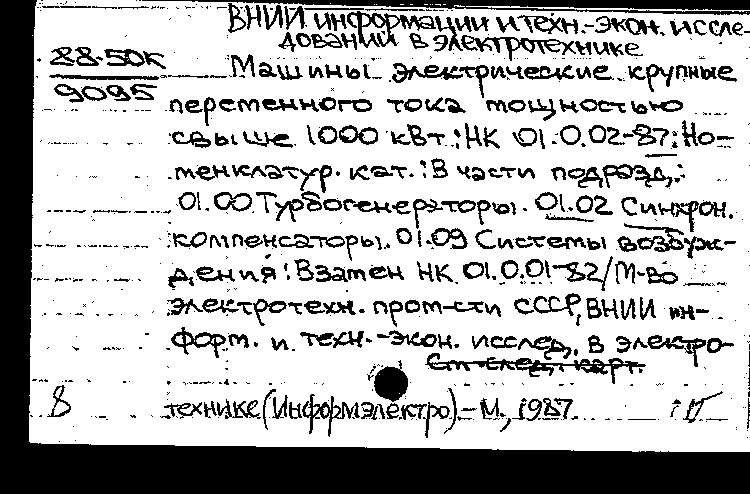 ВНИИ информации и техн.-экон. иссле-
дований в электротехнике
88-50к
9095
Машины электрические крупные
переменного тока мощностью
свыше 1000 кВт.: НК 01.0.02-87: Но-
менклатур. кат.: В части подразд.:
01.00 Турбогенераторы. 01.02 Синхрон.
компенсаторы. 01.09 Системы возбуж-
дения: Взамен НК 01.0.01-82/М-во
электротехн. пром-сти СССР, ВНИИ ин-
форм. и техн.-экон. исслед. в электро-
См след. карт.
8 технике (Информэлектро).- М., 1987.